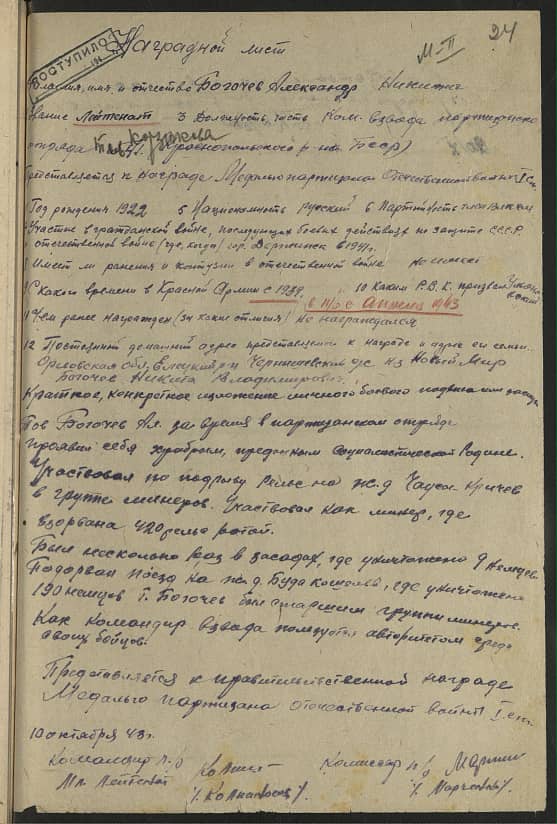 ПОСТУПИЛО
М-II
24
Наградной лист
Фамилия, имя и отчество Богачев Александр Никитич
Звание Лейтенант 3 Должность, часть Ком. взвода партизанско
отряда
Представляется к награде Медалью партизана Отечественной войны I ст.
Год рождения 1922 5 Национальность русский 6 Партийность член ВЛКСМ
Участие в гражданской войне, последующих боевых действиях по защите СССР
отечественной войне (где, когда) гор. Дзержинск в 1941 г.
Имеет ли ранения и контузии в отечественной войне не имеет
С какого времени в Красной Армии с 1939. 10 Каким Р.В.К. призван
в п/о с Апреля 1943
Чем ранее награжден (за какие отличия) не награждался
12 Постоянный домашний адрес представляемого к награде и адрес его семьи
Орловская обл, Елецкий р-н
Богачев Никита Владимирович.
Краткое, конкретное изложение личного боевого подвига или заслуг
Тов Богачев Ал. за время в партизанском отряде
проявил себя храбрым, преданным социалистической Родине.
Участвовал по подрыву рельс на ж.д Чаусы-Кричев
в группе минеров. Участвовал как минер, где
взорвана 420 рельс ротой.
Был несколько раз в засадах, где уничтожено 9 немцев
Подорвал поезд на ж.д. Буда Кошелева, где уничтожено
190 немцев Т. Богачев был старшим группы минеров.
Как командир взвода пользуется авторитетом среди
своих бойцов.
Представляется к правительственной награде
Медалью партизана Отечественной войны I ст.
10 октября 43 г.
Командир п.о Комиссар п/о
Мл. Лейтенант